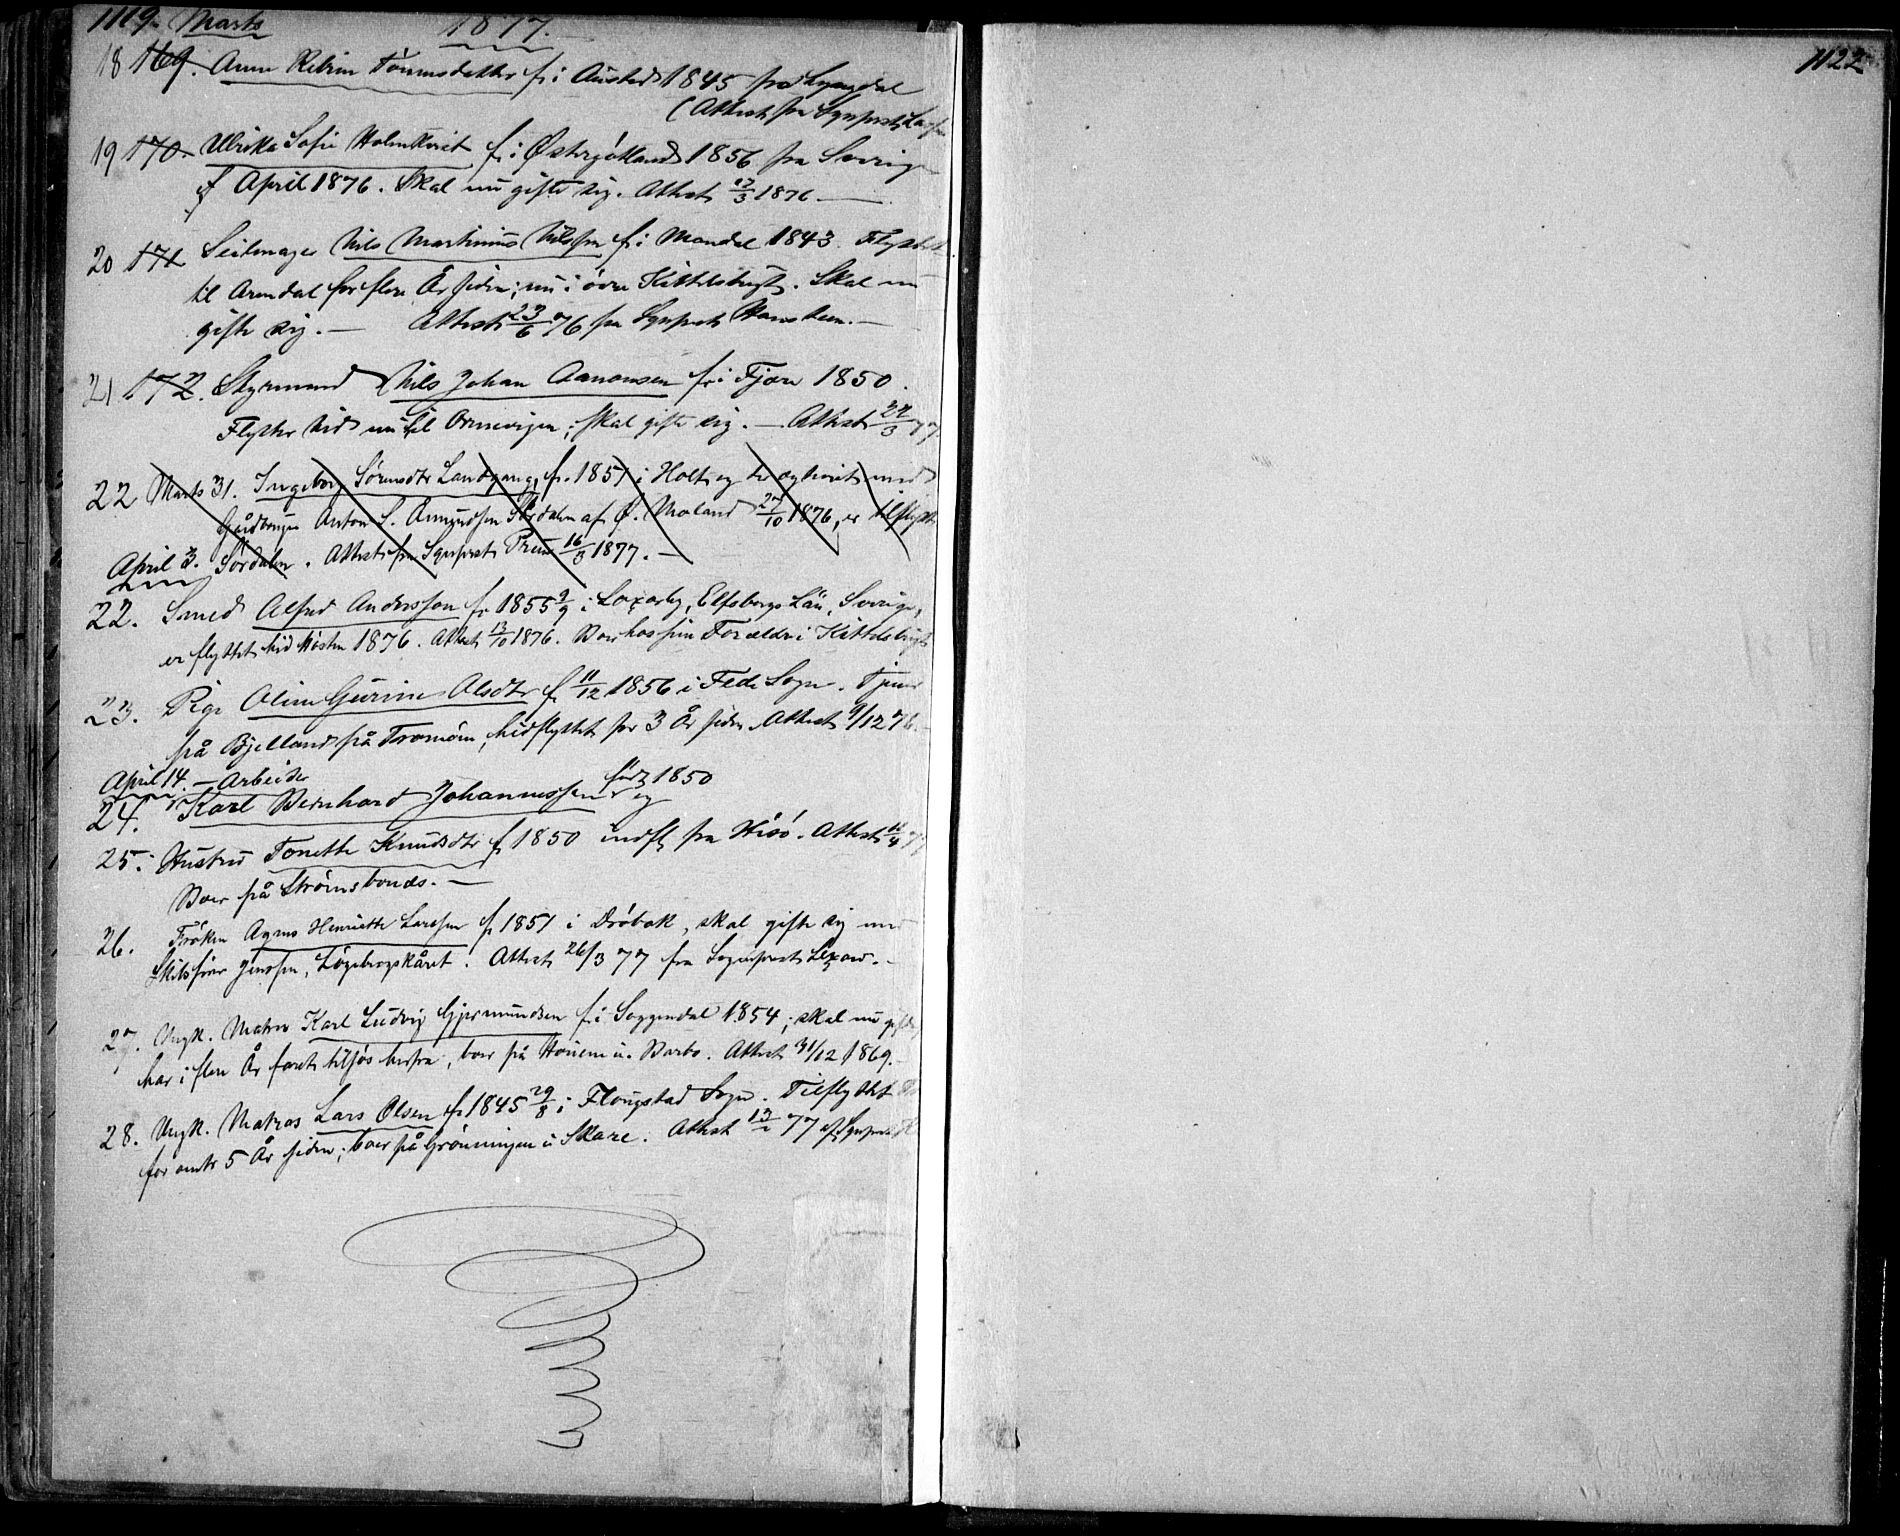 1119. Marts 1877.
18 169. Anne Tönnesdatter f. i Austad 1845 fra Lyngdal
(Attest fra Sgnprst
19 170. Ulrika Sofie Holmkvist f. i Östergötland 1856 fra Sverige
April 1876. Skal nu gifte sig. Attest 1876
20 171 Seilmager Nils Martinius Nilssen f. i Mandal 1843. Flyttet
til Arendal for flere År siden; nu i övre Kittelsbugt. Skal nu
gifte sig. — Attest 23/6 76 fra Sgnprst
21 172. Styrmand Nils Johan Aanonsen f. i Fjære 1850.
Flytter hid nu til Ormevigen; skal gifte sig. — Attest 22/3 77
22 Marts 31. Ingeborg Sörensdtr Landgang, f. 1851 i Holt og med
Gårdbruger Anton S. Åmundsen Sördalen af Ö. Moland 27/10 1876, er tilflyttet
April 3. Sördalen. Attest fra Sgnprst 16/3 1877. —
22. Smed Alfred Anderssen f. 1855 9/9 i Elfsborgs Län, Sverige,
er flyttet hid Hösten 1876. Attest 13/10 1876. Boer hos sine Forældre i Kittelsbugt
23. Pige Oline Gurine Olsdtr f. 11/12 1856 i Fede Sogn. Tjener
på Bjelland på Tromöen, hidflyttet for 3 År siden. Attest 9/12 76.
April 14. — Arbeider
24. Karl Bernhard Johannessen född 1850
og
25. Hustru Tonette Knudsdtr f. 1850 indfl. fra Hisö. Attest 77
Boer på Strömsbunds. —
26. Fröken Agnes Henriette Larssen f. 1851 i Dröbak, skal gifte sig med
Skibsförer Jenssen, Attest 26/3 77 fra Sognepræst Lexow. —
27. Ungk. Matros Karl Ludvig Gjermundsen f. i Soggendal 1854; skal nu gifte
har i flere År faret tilsjös herfra, boer på u. Barbo. Attest 31/12 1869.
28. Ungk. Matros Lars Olsen f. 1845 29/8 i Sogn. Tilflyttet
for omtr 5 År siden; boer på Grönningen u Skare. Attest 77 af Sgnprst
1122